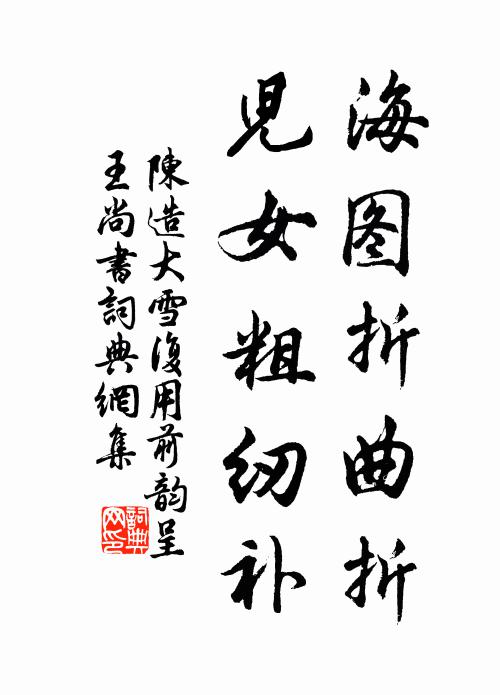 海图折曲折
児女粗纫补
陳造大雪復用前韵呈
王尚書詞典網集
詞典网印